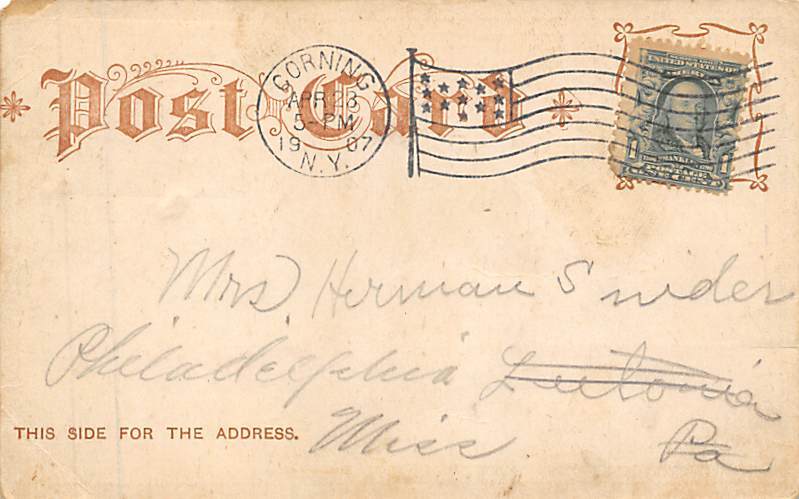 Post Card
CORNING
APR 23
5 PM
1907
N.Y.
UNITED STATES OF
1 POSTAGE 1
Mrs Herman Snider
Philadelphia Leetonia
Miss Pa
THIS SIDE FOR THE ADDRESS.